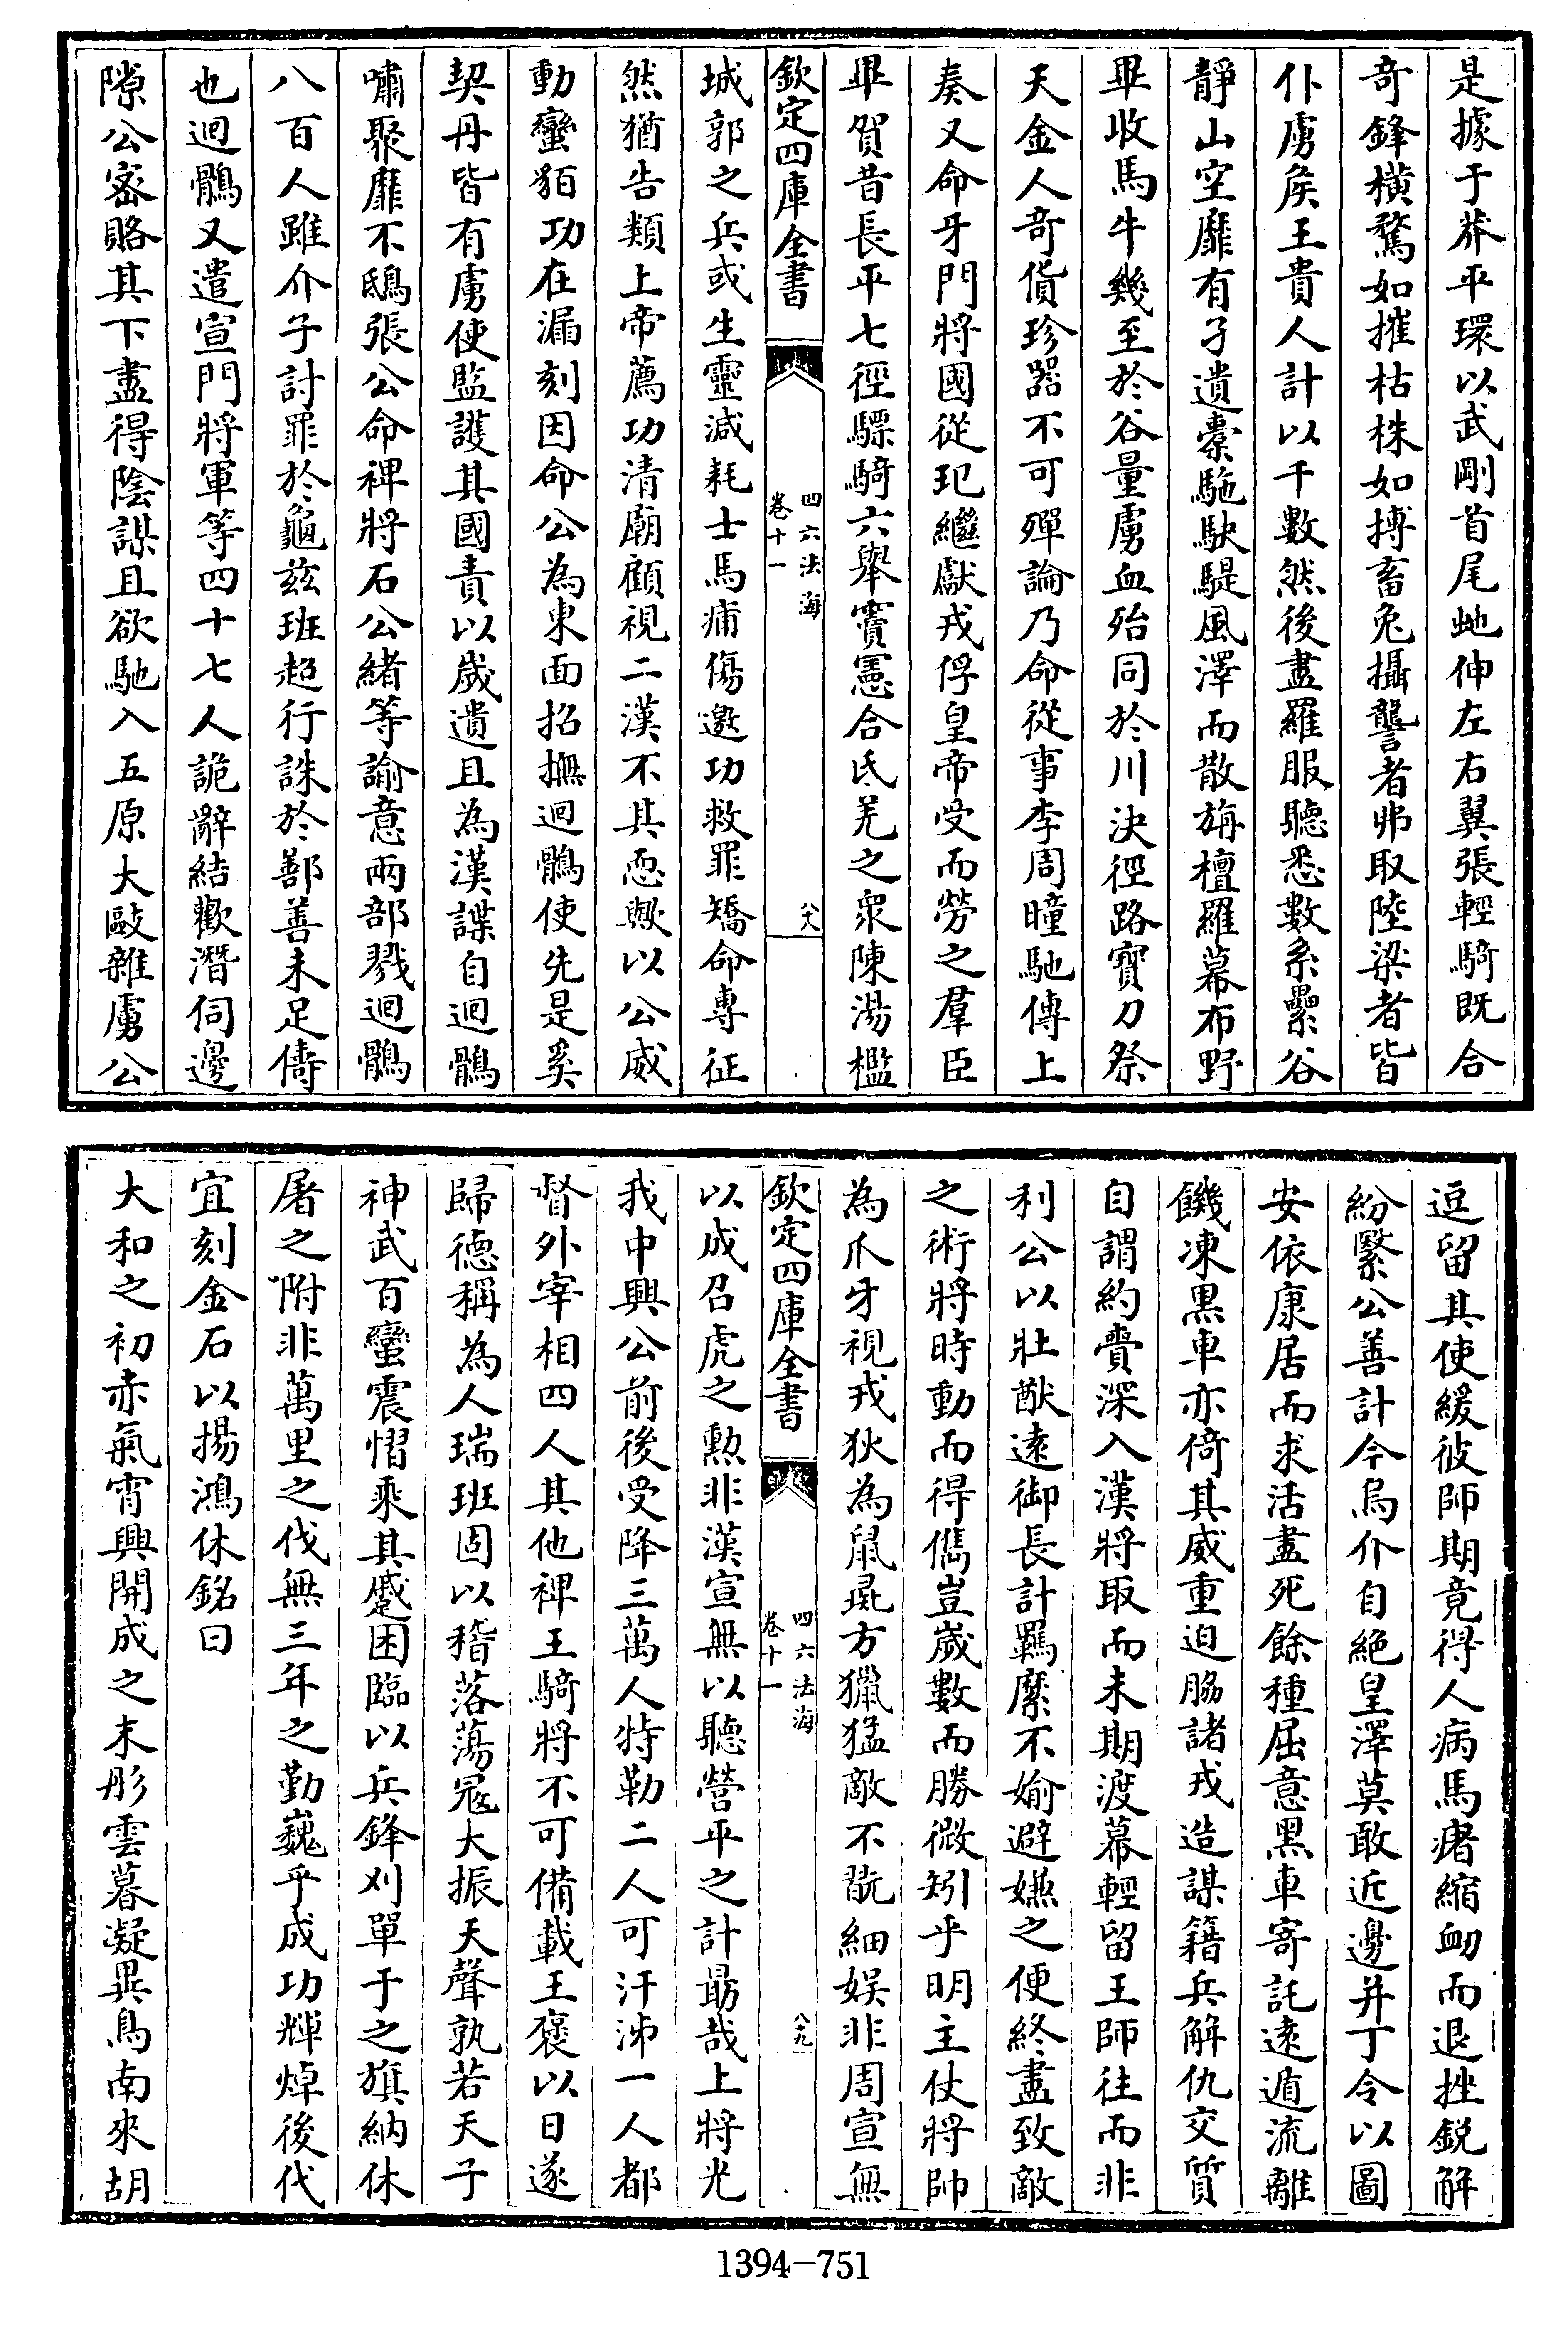 是據于莽平環以武剛首尾虵伸左右翼張輕騎既合
奇鋒橫騖如摧枯株如搏畜兔攝讋者弗取陸梁者皆
仆虜矦王貴人計以千數然後盡羅服聽悉數系纍谷
靜山空靡有孑遺槖駞駃騠風澤而散旃檀羅幕布野
畢收馬牛幾至於谷量虜血殆同於川決徑路寶刀祭
天金人奇貨珍器不可殫論乃命從事李周瞳馳傳上
奏又命牙門將國從玘繼獻戎俘皇帝受而勞之羣臣
畢賀昔長平七徑驃騎六舉竇憲合氐羌之衆陳湯檻
欽定四庫全書
四六法海
卷十一
八八
城郭之兵或生靈減耗士馬痡傷邀功救罪矯命專征
然猶告類上帝薦功清廟顧視二漢不其恧歟以公威
動蠻貊功在漏刻因命公為東面招撫迴鶻使先是奚
契丹皆有虜使監護其國責以歲遺且為漢諜自迴鶻
嘯聚靡不鴟張公命裨將石公緒等諭意兩部戮迴鶻
八百人雖介子討罪於龜玆班超行誅於鄯善未足儔
也迴鶻又遣宣門將軍等四十七人詭辭結歡潛伺邊
隙公密賂其下盡得陰謀且欲馳入五原大敺雜虜公
逗留其使緩彼師期竟得人病馬瘏縮衂而退挫銳解
紛繄公善計今烏介自絶皇澤莫敢近邊并丁令以圖
安依康居而求活盡死餘種屈意黑車寄託遠遁流離
饑凍黑車亦倚其威重迫脇諸戎造謀籍兵解仇交質
自謂約賫深入漢將取而未期渡幕輕留王師往而非
利公以壯猷遠御長計羈縻不媮避嫌之便終盡致敵
之術將時動而得儁豈嵗數而勝微矧乎明主仗將帥
為爪牙視戎狄為鼠虱方獵猛敵不翫細娱非周宣無
欽定四庫全書
四六法海
卷十一
八九
以成召虎之勲非漢宣無以聽營平之計勗哉上將光
我中興公前後受降三萬人特勒二人可汗沛一人都
督外宰相四人其他裨王騎將不可備載王褒以日遂
歸德稱為人瑞班固以稽落蕩冦大振天聲孰若天子
神武百蠻震慴乘其蹙困臨以兵鋒刈單于之旗納休
屠之附非萬里之伐無三年之勤巍乎成功輝焯後代
宜刻金石以揚鴻休銘曰
大和之初赤氣宵興開成之末彤雲暮凝異鳥南來胡
1394-751